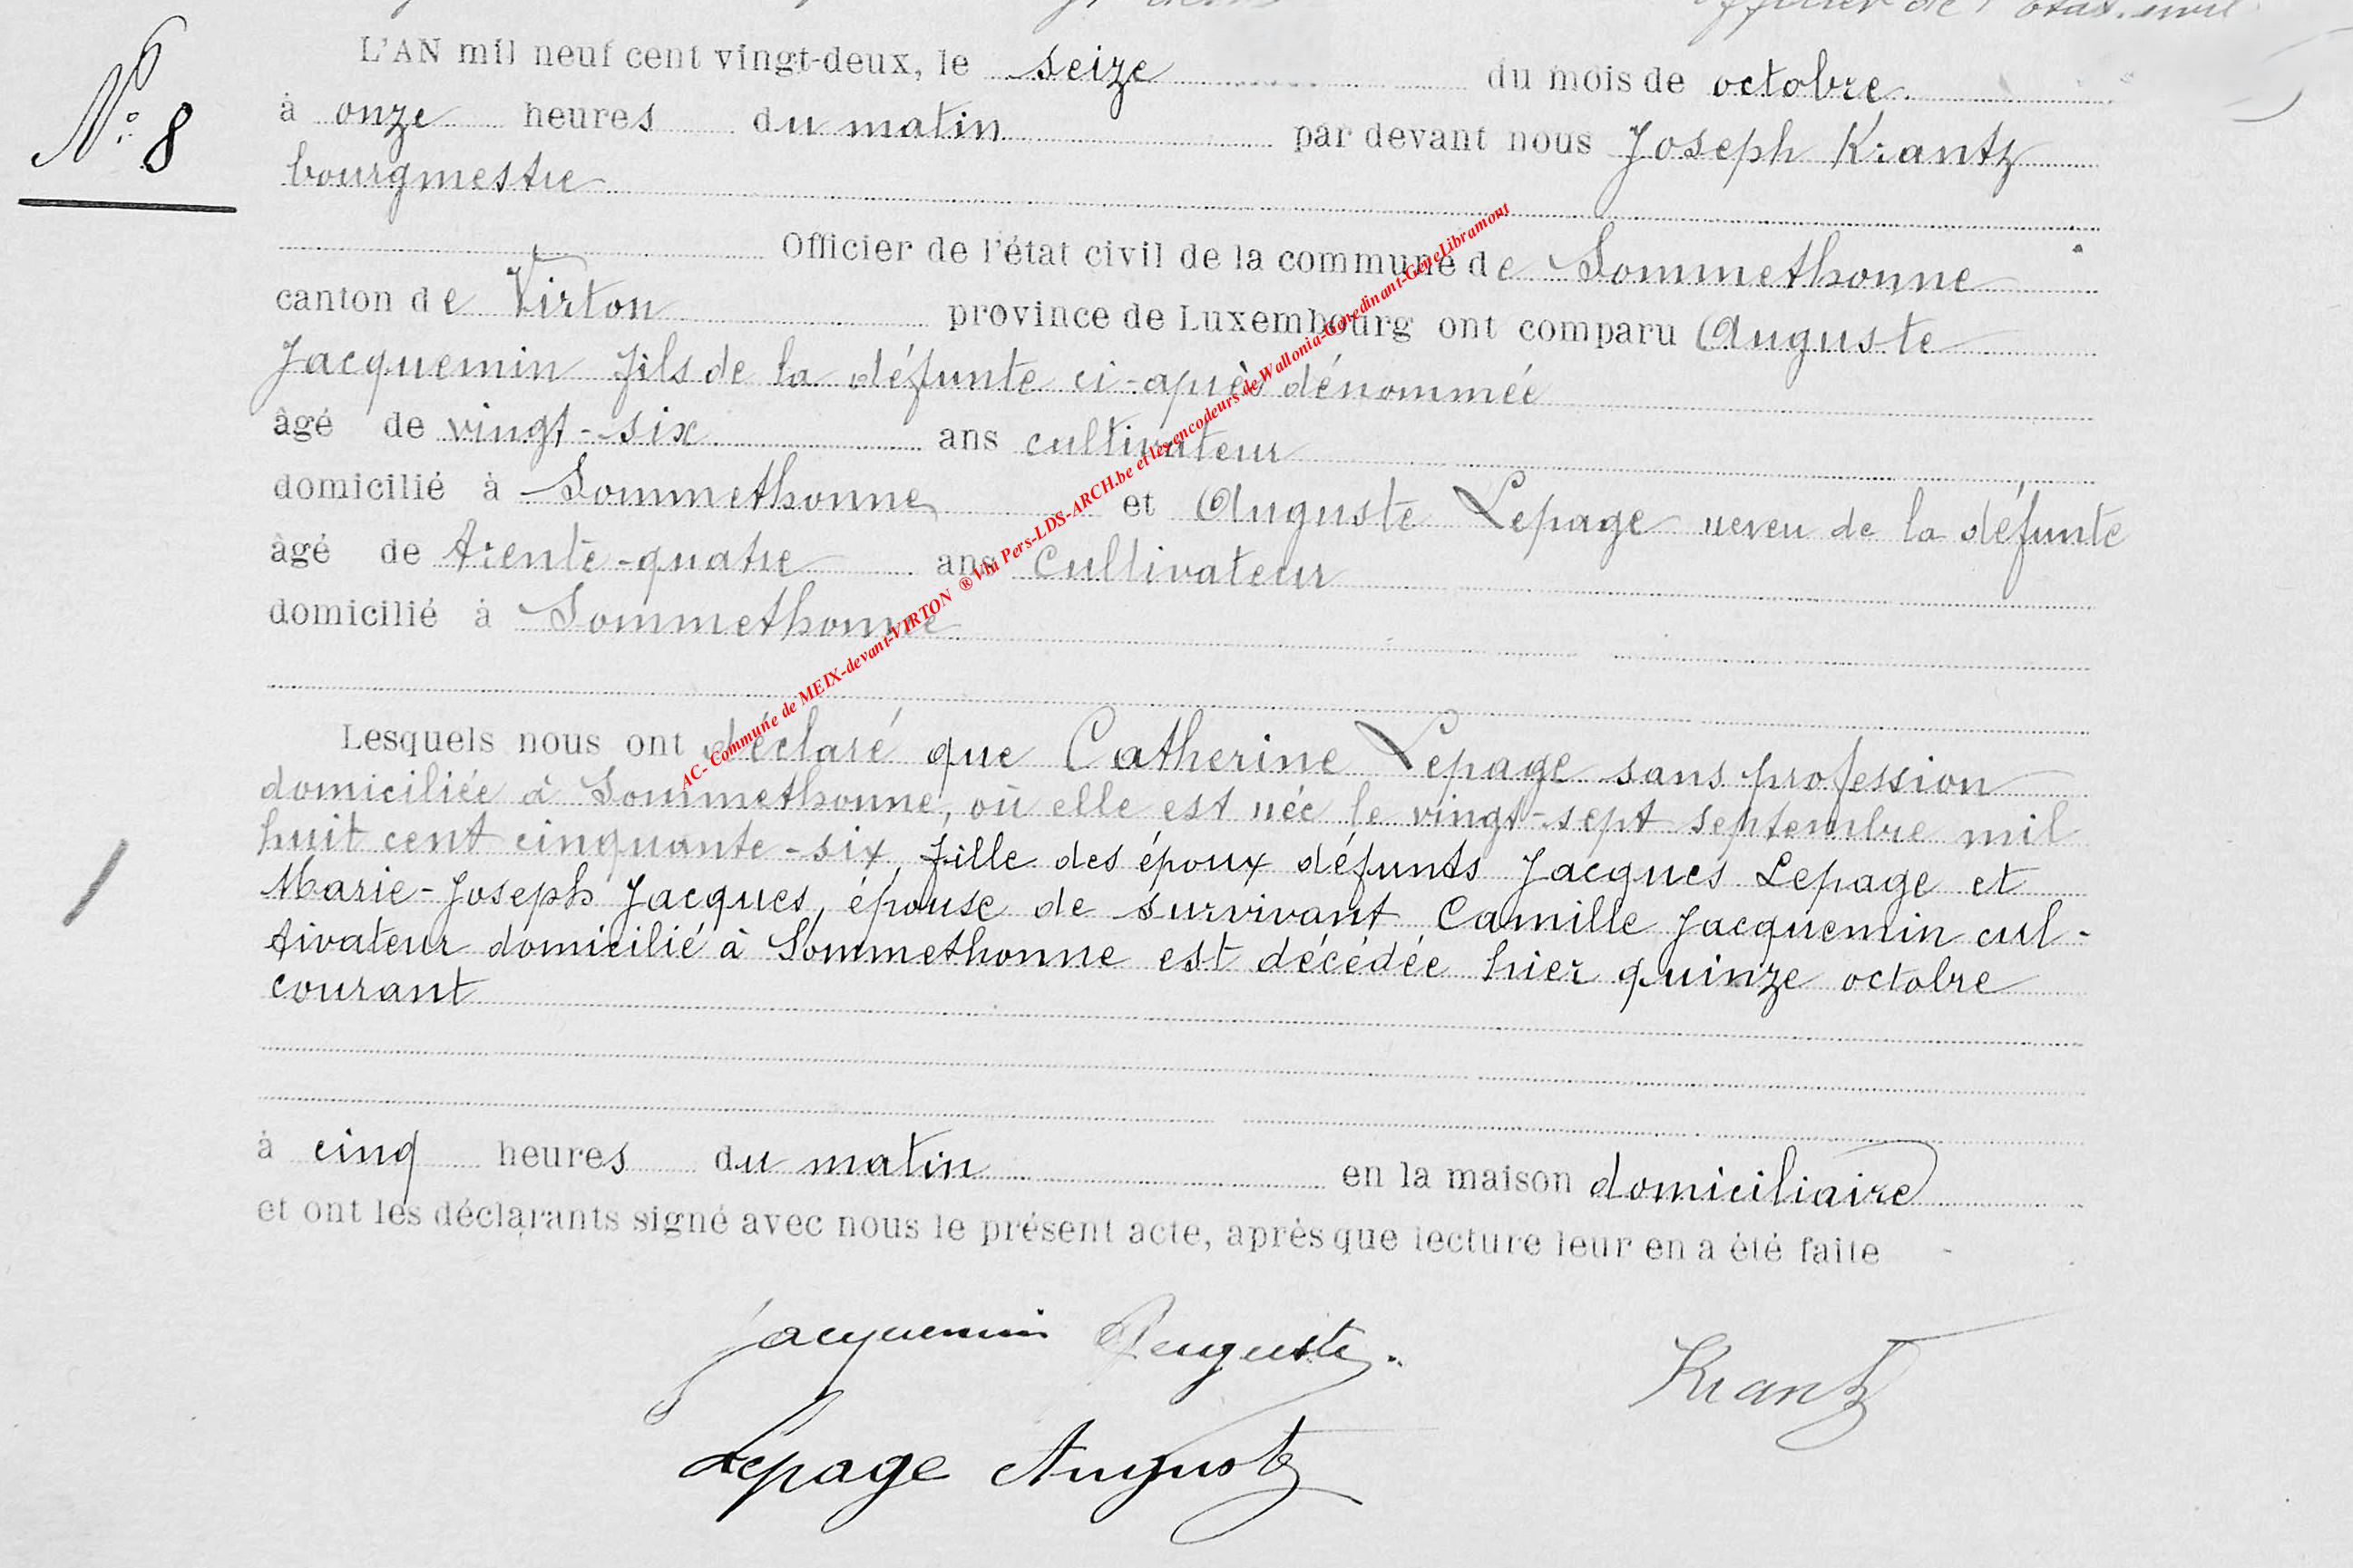 officier de l'état civil
N° 8
L'AN mil neuf cent vingt-deux, le seize du mois de octobre
à onze heures du matin par devant nous Joseph Krantz
bourgmestre
Officier de l'état civil de la commune de Sommethonne
canton de Virton province de Luxembourg ont comparu Auguste
Jacquemin fils de la défunte ci-après dénommée
âgé de vingt-six ans cultivateur
domicilié à Sommethonne et Auguste Lepage neveu de la défunte
âgé de trente-quatre ans cultivateur
domicilié à Sommethonne
AC- Commune de MEIX-devant-VIRTON ® Via Pers-LDS-ARCH.be et les encodeurs de Wallonia-Genedinant-GeneLibramont
Lesquels nous ont déclaré que Catherine Lepage sans profession
domiciliée à Sommethonne, où elle est née le vingt-sept septembre mil
huit cent cinquante-six, fille des époux défunts Jacques Lepage et
Marie-Joseph Jacques, épouse de survivant Camille Jacquemin cul-
tivateur domicilié à Sommethonne est décédée hier quinze octobre
courant
à cinq heures du matin en la maison domiciliaire
et ont les déclarants signé avec nous le présent acte, après que lecture leur en a été faite
Jacquemin Auguste.
Krantz
Lepage Auguste